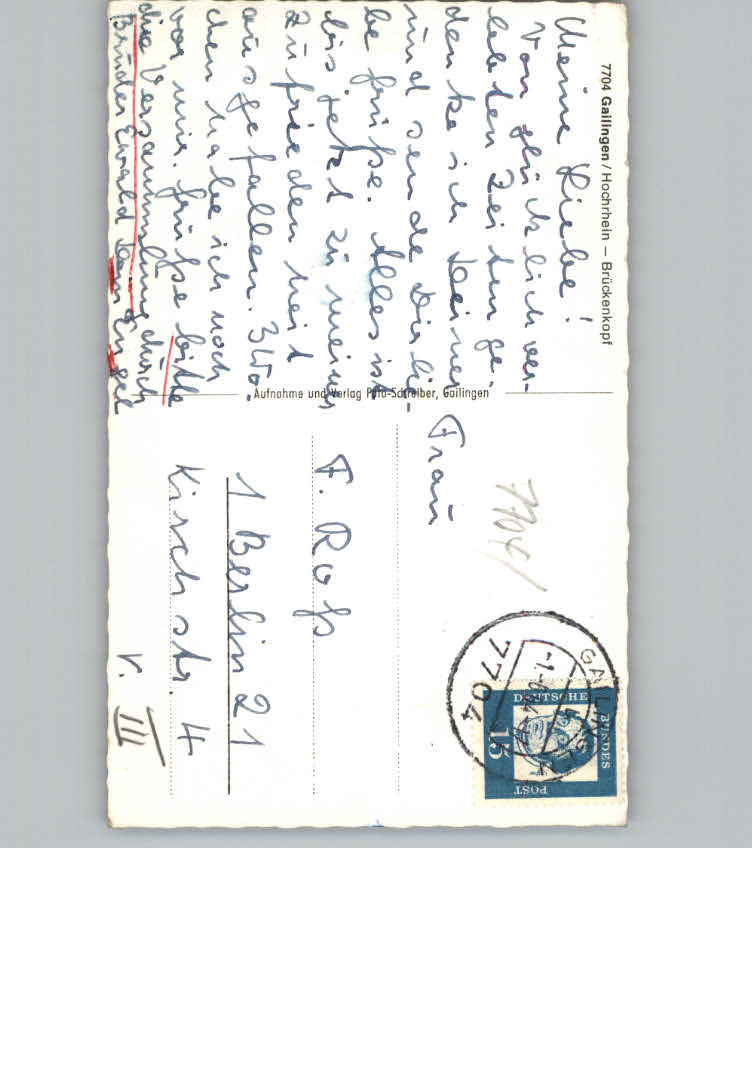 7704 Gailingen / Hochrhein — Brückenkopf
Meine Liebe!
Von glücklich ver-
lebten Zeiten ge-
denke ich Deiner
und sende Dir lie-
be Grüße. Alles ist
bis jetzt zu meiner
Zufriedenheit
ausgefallen. 3 Wo-
chen habe ich noch
vor mir. Grüße bitte
die Versammlung durch
Bruder Ewald Dein Engel
Aufnahme und Verlag Foto-Schreiber, Gailingen
7704/
Frau
F. Roß
1 Berlin 21
Kirchstr. 4
v. III
GAILINGEN
7704
DEUTSCHE
BUNDES
POST
15